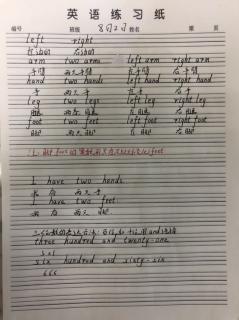 英语练习纸
编号 班级 8月2日 姓名 第 页
left right
左边的 右边的
arm two arms left arm right arm
手臂 两只手臂 左手臂 右手臂
hand two hands left hand right hand
手 两只手 左手 右手
leg two legs left leg right leg
腿 两条腿 左腿 右腿
foot two feet left foot right foot
脚 两只脚 左脚 右脚
I have two hands.
我 有 两只手
I have two feet.
我 有 两只脚
three hundred and twenty-one
321
six hundred and sixty-six
666